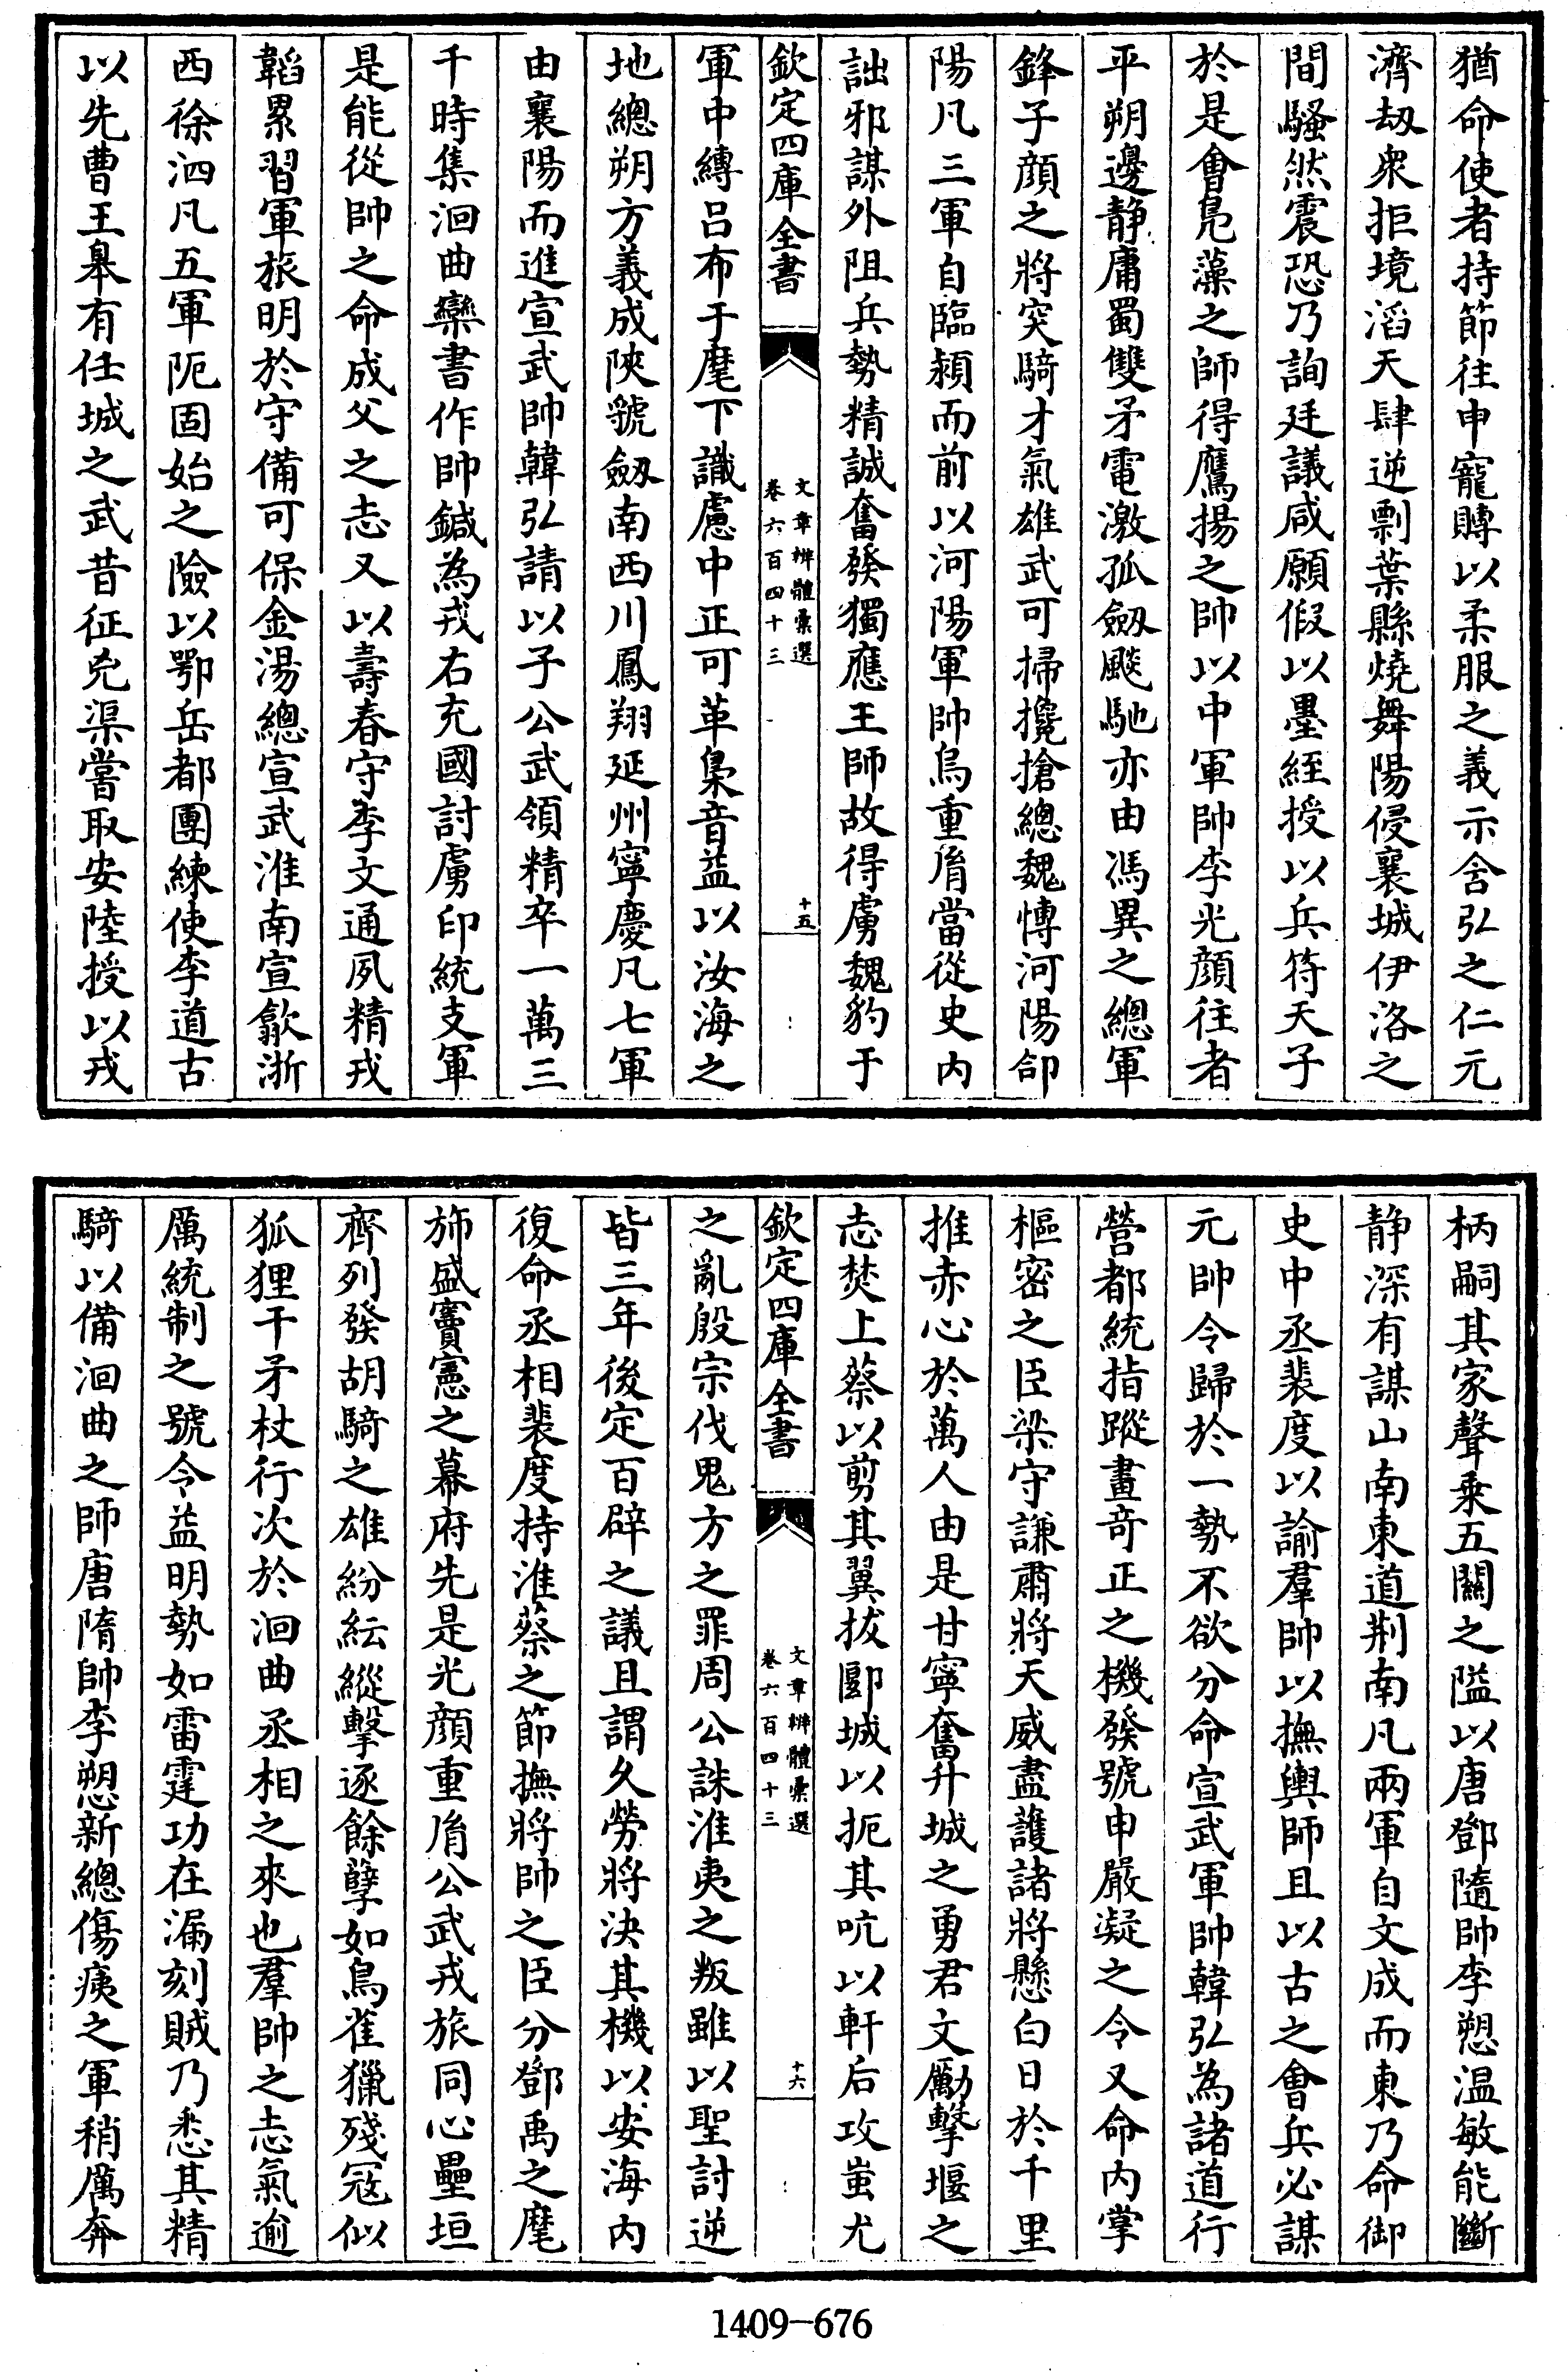 猶命使者持節往申寵賻以柔服之義示舍弘之仁元
濟刼衆拒境滔天肆逆剽葉縣燒舞陽侵襄城伊洛之
間騷然震恐乃詢廷議咸願假以墨絰授以兵符天子
於是會鳧藻之師得鷹揚之帥以中軍帥李光顔往者
平朔邊靜庸蜀雙矛電激孤劔飈馳亦由馮異之總軍
鋒子顔之將突騎才氣雄武可掃攙搶總魏博河陽郃
陽凡三軍自臨潁而前以河陽軍帥烏重㣧當從史内
詘邪謀外阻兵勢精誠奮發獨應王師故得虜魏豹于
欽定四庫全書
文章辨體彙選
卷六百四十三
十五
軍中縳吕布于麾下識慮中正可革梟音益以汝海之
地總朔方義成陜虢劔南西川鳳翔延州寧慶凡七軍
由襄陽而進宣武帥韓弘請以子公武領精卒一萬三
千時集洄曲欒書作帥鍼為戎右充國討虜印統支軍
是能從帥之命成父之志又以壽春守李文通夙精戎
韜累習軍旅明於守備可保金湯總宣武淮南宣歙浙
西徐泗凡五軍阨固始之險以鄂岳都團練使李道古
以先曹王臯有任城之武昔征兇渠嘗取安陸授以戎
柄嗣其家聲乗五關之隘以唐鄧隨帥李愬温敏能斷
静深有謀山南東道荆南凡兩軍自文成而東乃命御
史中丞裴度以諭羣帥以撫輿師且以古之會兵必謀
元帥令歸於一勢不欲分命宣武軍帥韓弘為諸道行
營都統指蹤畫竒正之機發號申嚴凝之令又命内掌
樞密之臣梁守謙肅將天威盡護諸將懸白日於千里
推赤心於萬人由是甘寧奮升城之勇君文勵擊堰之
志焚上蔡以剪其翼拔郾城以扼其吭以軒后攻蚩尤
欽定四庫全書
文章辨體彙選
卷六百四十三
十六
之亂殷宗伐鬼方之罪周公誅淮夷之叛雖以聖討逆
皆三年後定百辟之議且謂久勞將決其機以安海内
復命丞相裴度持淮蔡之節撫將帥之臣分鄧禹之麾
斾盛竇憲之幕府先是光顔重㣧公武戎旅同心壘垣
齊列發胡騎之雄紛紜縱擊逐餘孽如鳥雀獵殘冦似
狐狸干矛杖行次於洄曲丞相之來也羣帥之志氣逾
厲統制之號令益明勢如雷霆功在漏刻賊乃悉其精
騎以備洄曲之師唐隋帥李愬新總傷痍之軍稍厲奔
1409-676